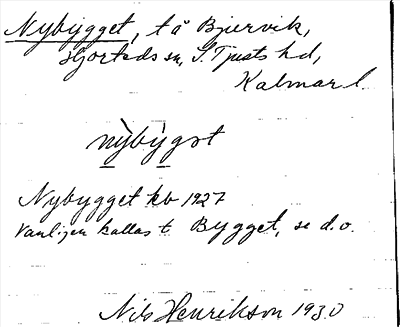 Nybygget, t å Bjervik,
Hjorteds sn, S. Tjusts hd,
Kalmar l.
nỳbỳgət
Nybygget kb 1927
Vanligen kallas t. Bygget, se d.o.
Nils Henrikson 1930